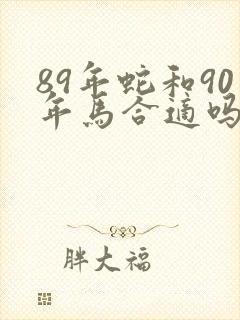 89年蛇和90
年馬合適吗
胖大福